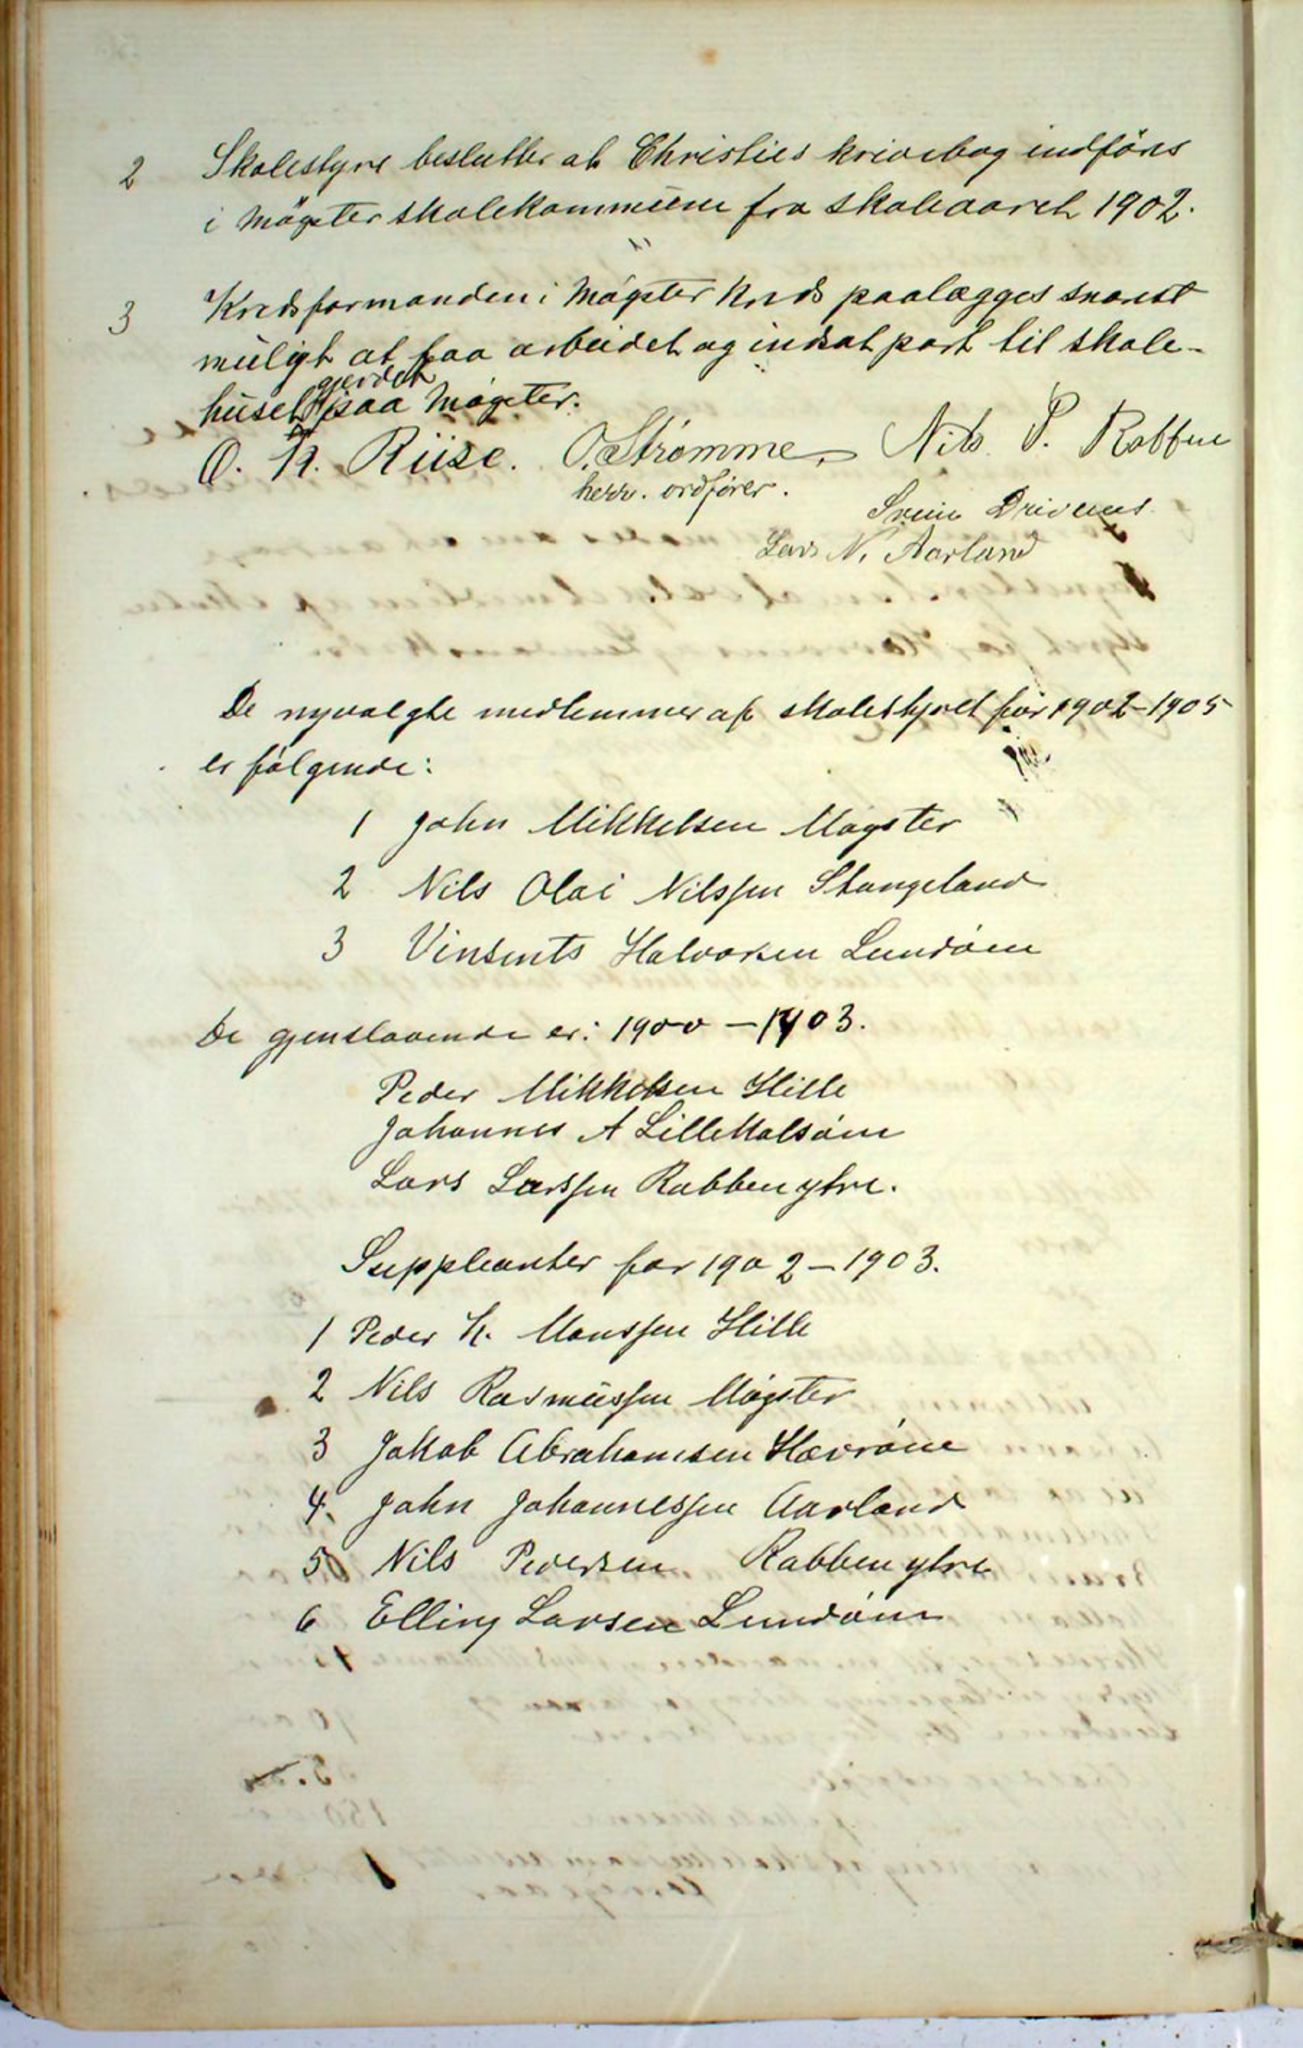 2 Skolestyre beslutter at Christies krivebog indföres
i Mögster skolekommune fra skoleaaret 1902.
3 Kredsformanden i Mögster kreds paalægges snarest
muligt at faa arbeidet og indsat port til skole-
huset gjerdet paa Mögster.
O. N. Riise. O. Strømme, Nils P. Rabben
herr. ordfører.
Lars N. Aarland
De nyvalgte medlemmer af skolestyret for 1902-1905
er følgende:
1 John Mikkelsen Møgster
2 Nils Olai Nilssen Stangeland
3 Vinsents Halvorsen Lundøen
De gjenstaaende er: 1900-1903.
Peder Mikkelsen Hille
Johannes A Lillekalsøen
Lars Larssen Rabben ytre.
Suppleanter for 1902-1903.
1 Peder H. Monssen Hille
2 Nils Rasmussen Møgster
3 Jakob Abrahamsen Hævrøen
4. John Johannessen Aarland
5 Nils Pedersen Rabben ytre
6 Elling Larsen Lundøen